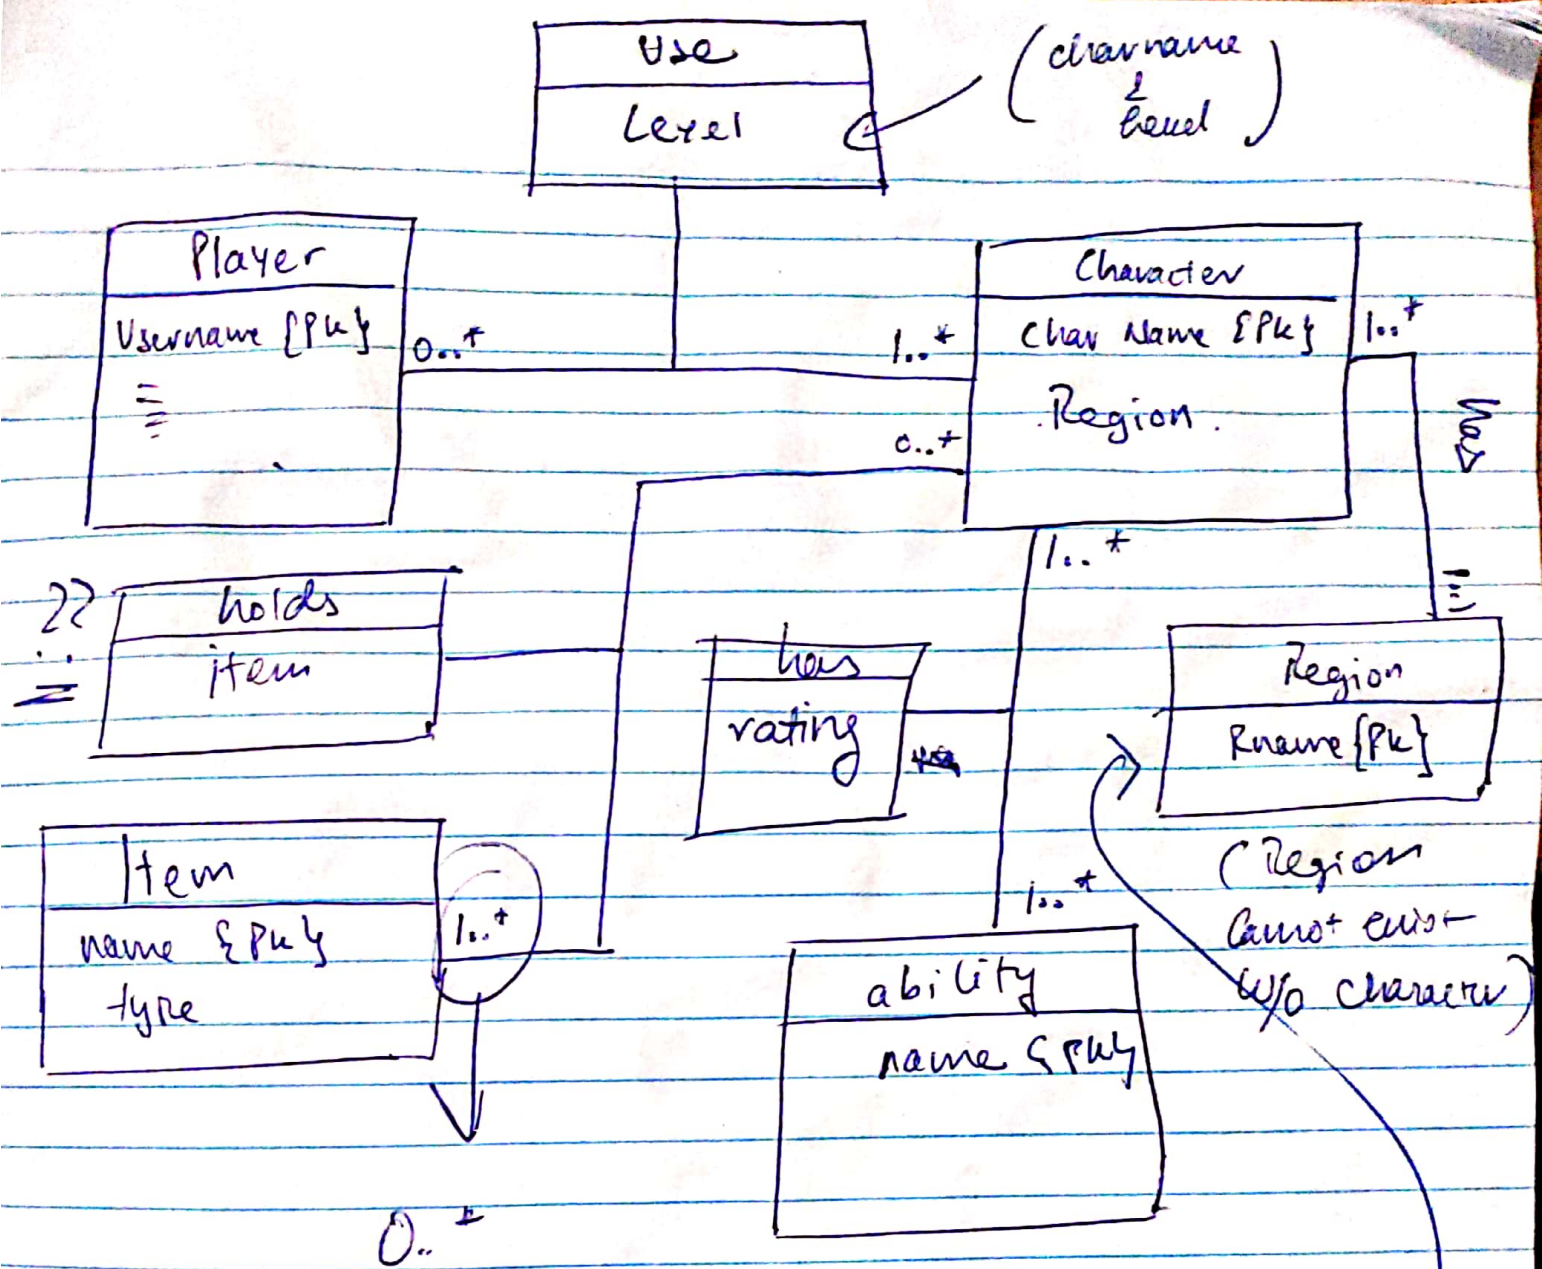 Use
Level
(charname
&
level)
Player
Username {PK}
0..*
1..*
Character
Char Name {PK}
Region.
1..*
has
0..*
1..*
??
holds
item
has
rating
1..1
Region
Rname{PK}
Item
name {PK}
type
1..*
1..*
ability
name {PK}
(Region
Cannot exist
w/o character)
0..*